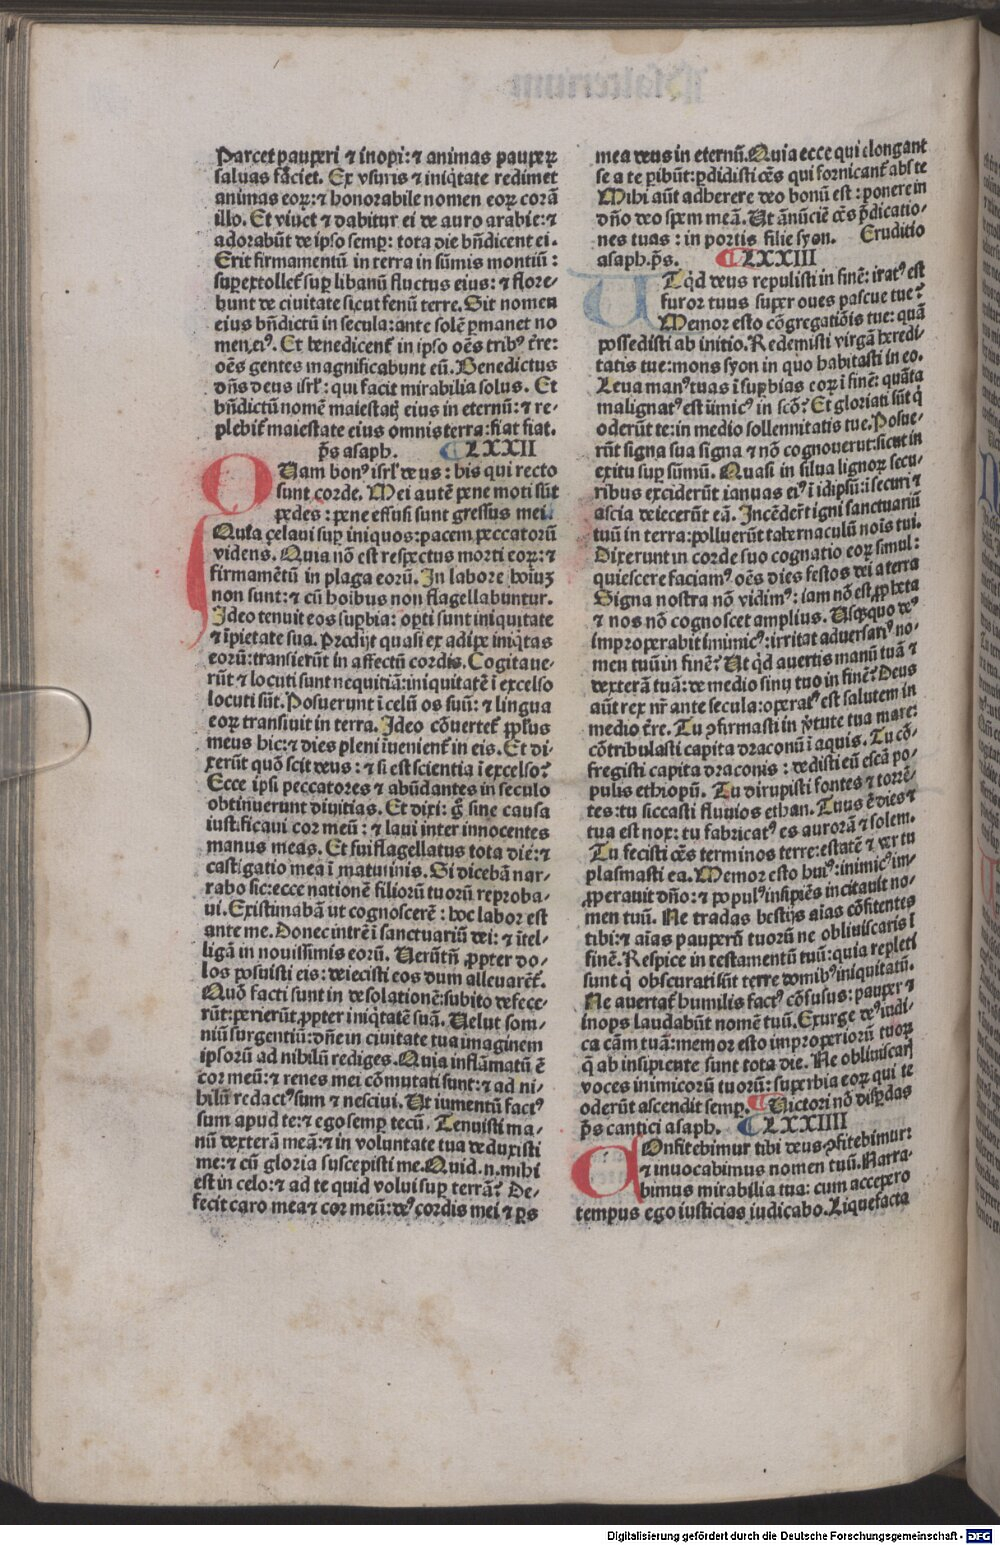 Parcet pauperi ⁊ inopi: ⁊ animas pauperꝝ
saluas faciet. Ex vsuris ⁊ iniq̇tate redimet
animas eoꝝ: ⁊ honorabile nomen eoꝝ corā
illo. Et viuet ⁊ dabitur ei de auro arabie: ⁊
adorabūt de ipso semꝑ: tota die bn̄dicent ei.
Erit firmamentū in terra in sūmis montiū:
suꝑextollet᷑ suꝑ libanū fluctus eius: ⁊ flore-
bunt de ciuitate sicut fenū terre. Sit nomen
eius bn̄dictū in secula: ante solē ꝑmanet no
men eiꝰ. Et benedicent᷑ in ipso oēs tribꝰ t̄re:
oēs gentes magnificabunt eū. Benedictus
dn̄s deus isrl̓: qui facit mirabilia solus. Et
bn̄dictū nomē maiestatꝭ eius in eternū: ⁊ re-
plebit᷑ maiestate eius omnis terra: fiat fiat.
p̄s asaph. LXXII
QUam bonꝰ isrl̓ deus: his qui recto
sunt corde. Mei autē pene moti sūt
pedes: pene effusi sunt gressus mei.
Quia çelaui suꝑ iniquos: pacem peccatorū
videns. Quia nō est respectus morti eoꝝ: ⁊
firmamētū in plaga eorū. In labore hoīuꝫ
non sunt: ⁊ cū hoībus non flagellabuntur.
Ideo tenuit eos suꝑbia: oꝑti sunt iniquitate
⁊ īpietate sua. Prodijt quasi ex adipe iniq̇tas
eorū: transierūt in affectū cordis. Cogitaue-
rūt ⁊ locuti sunt nequitiā: iniquitatē ī excelso
locuti sūt. Posuerunt ī celū os suū: ⁊ lingua
eoꝝ transiuit in terra. Ideo cōuertet᷑ ppl̓us
meus hic: ⁊ dies pleni īuenient᷑ in eis. Et di-
xerūt quō scit deus: ⁊ si est scientia ī excelso?
Ecce ipsi peccatores ⁊ abūdantes in seculo
obtinuerunt diuitias. Et dixi: g̊ sine causa
iustificaui cor meū: ⁊ laui inter innocentes
manus meas. Et fui flagellatus tota die: ⁊
castigatio mea ī matutinis. Si dicebā nar-
rabo sic: ecce nationē filiorū tuorū reproba-
ui. Existimabā ut cognoscerē: hoc labor est
ante me. Donec intrē ī sanctuariū dei: ⁊ ītel-
ligā in nouissimis eorū. Uerūtn̄ ꝓpter do-
los posuisti eis: deiecisti eos dum alleuarēt᷑.
Quō facti sunt in desolationē: subito defece-
rūt: perierūt ꝓpter iniq̇tatē suā. Uelut som-
niū surgentiū: dn̄e in ciuitate tua imaginem
ipsorū ad nihilū rediges. Quia inflāmatū ē
cor meū: ⁊ renes mei cōmutati sunt: ⁊ ad ni-
hilū redactꝰ sum ⁊ nesciui. Ut iumentū factꝰ
sum apud te: ⁊ ego semꝑ tecū. Tenuisti ma-
nū dexterā meā: ⁊ in voluntate tua deduxisti
me: ⁊ cū gloria suscepisti me. Quid .n. mihi
est in celo: ⁊ ad te quid volui suꝑ terrā? De-
fecit caro mea ⁊ cor meū: deꝰ cordis mei ⁊ ꝑs
mea deus in eternū. Quia ecce qui elongant
se a te ꝑibūt: ꝑdidisti oēs qui fornicant᷑ abs te
Mihi aūt adherere deo bonū est: ponere in
dn̄o deo spem meā. Ut ānūciē oēs p̄dicatio-
nes tuas: in portis filie syon. Eruditio
asaph. p̄s. LXXIII
UTq̇d deus repulisti in finē: iratꝰ est
furor tuus super oues pascue tue?
Memor esto cōgregatiōis tue: quā
possedisti ab initio. Redemisti virgā heredi-
tatis tue: mons syon in quo habitasti in eo.
Leua manꝰ tuas ī suꝑbias eoꝝ ī finē: quāta
malignatꝰ est īimicꝰ in scō? Et gloriati sūt q̇
oderūt te: in medio sollennitatis tue. Posue-
rūt signa sua signa ⁊ nō cognouerūt: sicut in
exitu suꝑ sūmū. Quasi in silua lignoꝝ secu-
ribus exciderūt ianuas eiꝰ ī idipsū: ī securi ⁊
ascia deiecerūt eā. Incēder̄t igni sanctuariū
tuū in terra: polluerūt tabernaculū noīs tui.
Dixerunt in corde suo cognatio eoꝝ simul:
quiescere faciamꝰ oēs dies festos dei a terra
Signa nostra nō vidimꝰ: iam nō est ꝓpheta
⁊ nos nō cognoscet amplius. Usq̄quo deꝰ
improperabit inimicꝰ: irritat aduersariꝰ no-
men tuū in finē? Ut q̇d auertis manū tuā ⁊
dexterā tuā: de medio sinu tuo in finē? Deus
aūt rex nr̄ ante secula: operatꝰ est salutem in
medio t̄re. Tu ꝯfirmasti in v̓tute tua mare:
cōtribulasti capita draconū ī aquis. Tu cō-
fregisti capita draconis: dedisti eū escā po-
pulis ethiopū. Tu dirupisti fontes ⁊ torrē-
tes: tu siccasti fluuios ethan. Tuus ē dies ⁊
tua est nox: tu fabricatꝰ es aurorā ⁊ solem.
Tu fecisti oēs terminos terre: estatē ⁊ ver tu
plasmasti ea. Memor esto huiꝰ: inimicꝰ im-
ꝓperauit dn̄o: ⁊ populꝰ insipiēs incitauit no-
men tuū. Ne tradas bestijs aīas cōfitentes
tibi: ⁊ aīas pauperū tuorū ne obliuiscaris ī
finē. Respice in testamentū tuū: quia repleti
sunt q̇ obscurati sūt terre domibꝰ iniquitatū.
Ne auertat᷑ humilis factꝰ cōfusus: pauper ⁊
inops laudabūt nomē tuū. Exurge deꝰ iudi-
ca cām tuā: memor esto improperiorū tuoꝝ
q̄ ab insipiente sunt tota die. Ne obliuiscarꝭ
voces inimicorū tuorū: superbia eoꝝ qui te
oderūt ascendit semꝑ. Uictori nō disꝑdas
p̄s cantici asaph. LXXIIII
COnfitebimur tibi deus ꝯfitebimur:
⁊ inuocabimus nomen tuū. Narra-
bimus mirabilia tua: cum accepero
tempus ego iusticias iudicabo. Liquefacta
Digitalisierung gefördert durch die Deutsche Forschungsgemeinschaft - DFG